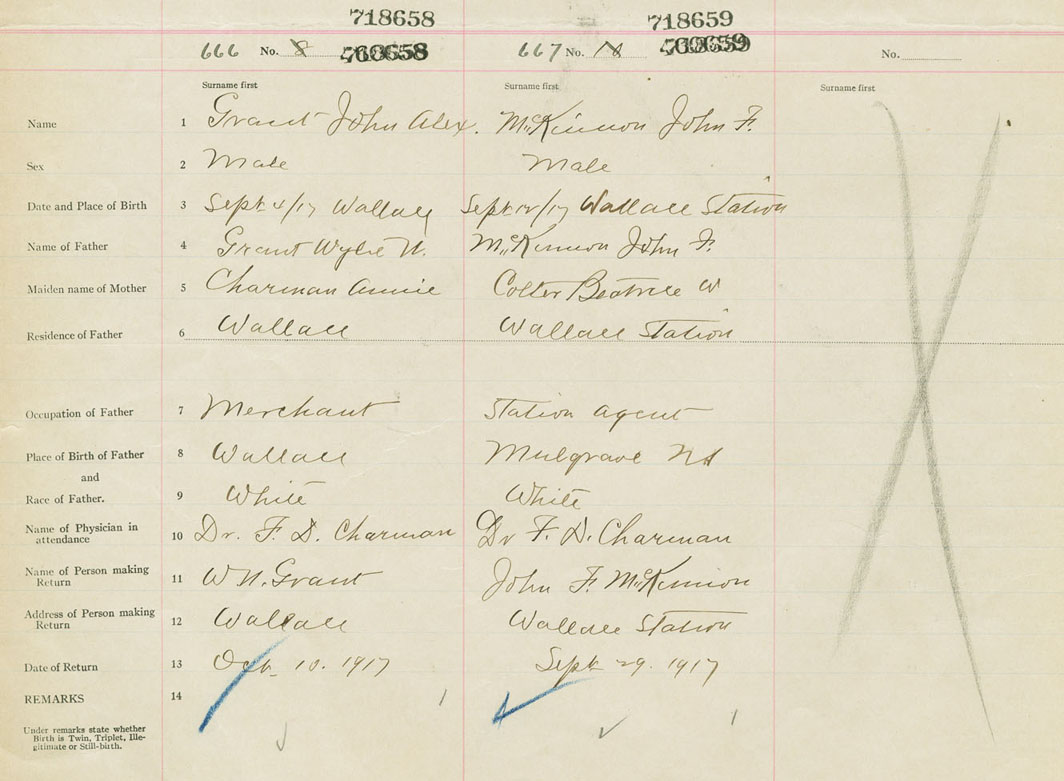 718658 718659
666 No. 8 560658 667 No. 18 560659 No.
Surname first Surname first Surname first
Name 1 Grant John Alex. McKinnon John F.
Sex 2 Male Male
Date and Place of Birth 3 Sept 4/17 Wallace Sept 12/17 Wallace Station
Name of Father 4 Grant Wylie N. McKinnon John F.
Maiden name of Mother 5 Charman Annie Colter Beatrice W
Residence of Father 6 Wallace Wallace Station
Occupation of Father 7 Merchant Station agent
Place of Birth of Father 8 Wallace Mulgrave NS
and
Race of Father. 9 White White
Name of Physician in
attendance 10 Dr. F. D. Charman Dr F. D. Charman
Name of Person making
Return 11 W N. Grant John F. McKinnon
Address of Person making
Return 12 Wallace Wallace Station
Date of Return 13 Oct. 10. 1917 Sept 29. 1917
REMARKS 14
Under remarks state whether
Birth is Twin, Triplet, Ille-
gitimate or Still-birth.